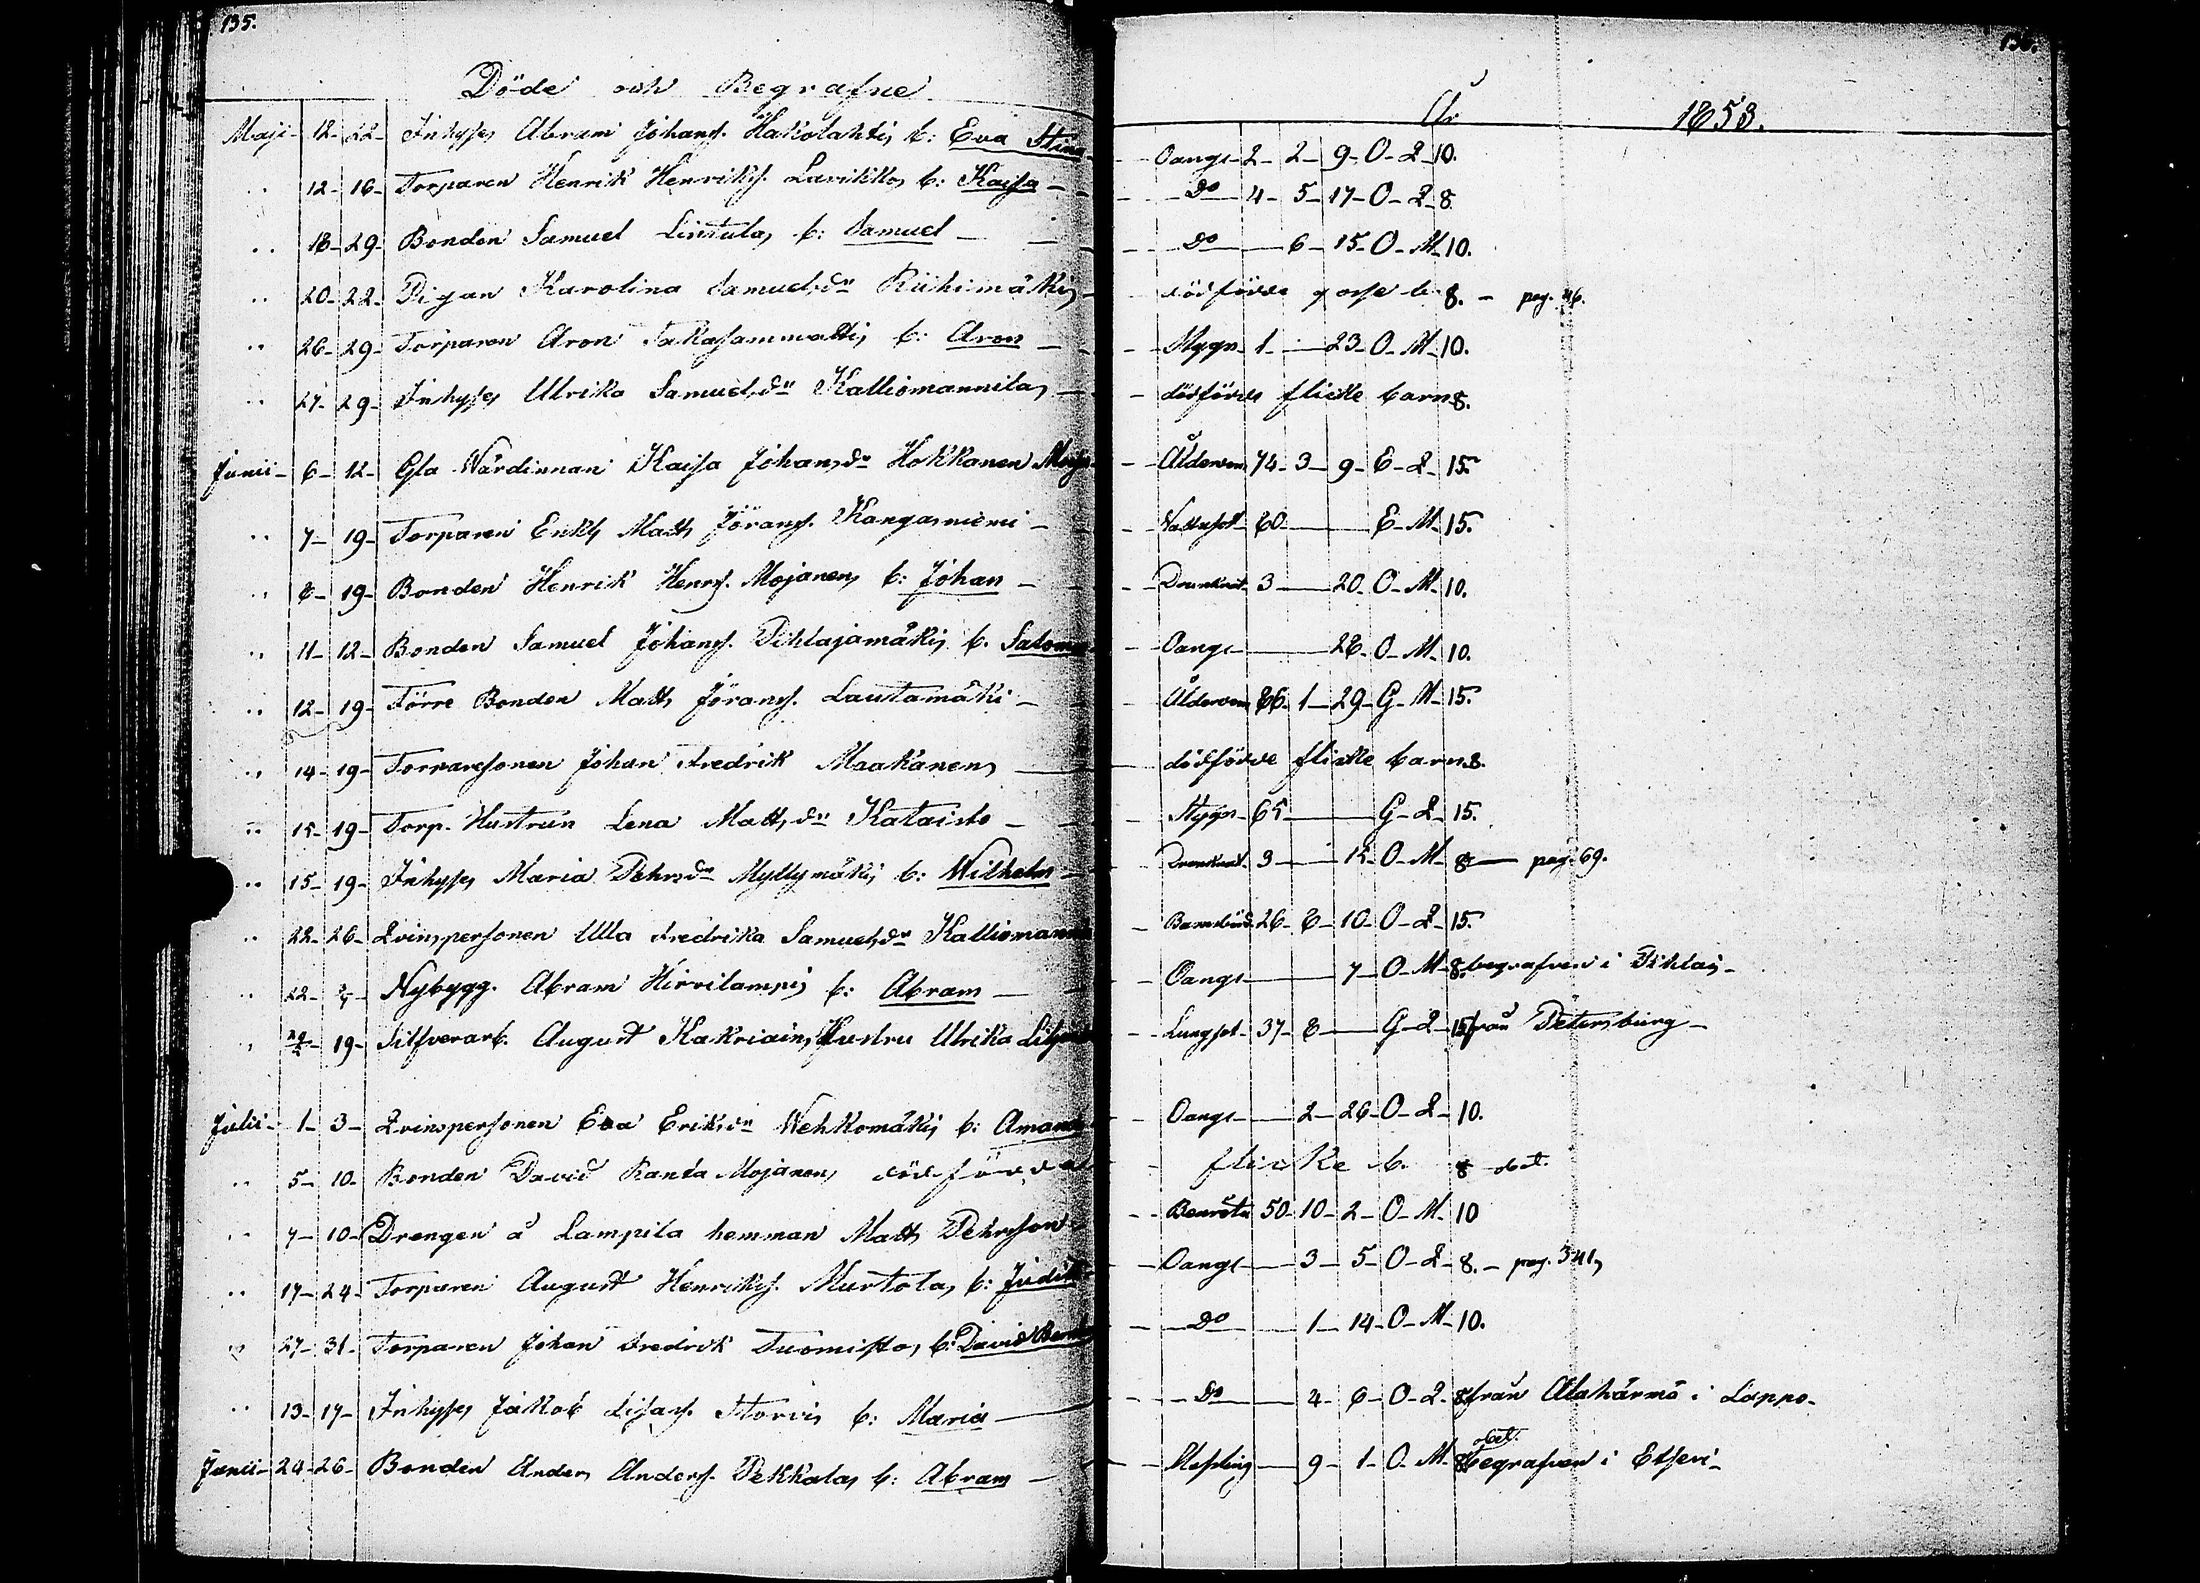 135.
136.
Döde och Begrafne
År 1853.
Maji - 12 - 22 - Inhyses Abram Johans. Hakolahtis b: Eva Stina - Oangs - 2 - 2 - 9 - O - Q - 10.
" 12 - 16 - Torparen Henrik Henriks. Lavikkos b: Kaisa - Do - 4 - 5 - 17 - O - Q - 8.
" 18 - 29 - Bonden Samuel Lintalas b: Samuel - Do - 6 - 15 - O - M - 10.
" 20 - 22 - Pigan Karolina Samuelsdr Riihimäkis - dödfödde gosse b. 8. - pag. 46.
" 26 - 29 - Torparen Aron Takasammattis b: Aron - Stygn - 1 - 23 - O - M - 10.
" 27 - 29 - Inhyses Ulrika Samuelsdr Kalliomannilas - dödfödde flicke barn 8.
Junii - 6 - 12 - Gla Wärdinnan Kaisa Johansdr Hokkanen - Ålderdom 74 - 3 - 9 - E - Q - 15.
" 7 - 19 - Torparen Enkl. Matts Jörans. Kangasniemi - Vattusot 60 - E - M - 15.
" 8 - 19 - Bonden Henrik Henrs. Mojanens b: Johan - Drunknat - 3 - 20 - O - M - 10.
" 11 - 12 - Bonden Samuel Johans. Pihlajamäkis b. Salomon - Oangs - 28 - O - M - 10.
" 12 - 19 - Förre Bonden Matts Jörans. Lautamäki - Ålderdom 86 - 1 - 29 - G - M - 15.
" 14 - 19 - Torparesonen Johan Fredrik Maakanens - dödfödde flicke barn 8.
" 15 - 19 - Torp. Hustrun Lena Mattsdr Kataisto - Stygn - 65 - G - Q - 15.
" 15 - 19 - Inhyses Maria Pehrsdr Myllymäkis b: Wilhelm - Drunknat - 3 - 15 - O - M - 8 - pag. 69.
" 22 - 26 - Qvinspersonen Ulla Fredrika Samuelsdr Kalliomannila - Barnsbörd 26 - 8 - 10 - O - Q - 15.
" 22 - Nybygg. Abram Hirvilampis b: Abram - Oangs - 7 - O - M - 8. begrafven i Pihlaj -
19 - Silfverarb. August Kakriains Hustru Ulrika - Lungsot - 37 - 8 - G - Q - 15 från Petersburg -
Julii - 1 - 3 - Qvinspersonen Eva Eriksdr Wehkomäkis b: Amanda - Oangs - 2 - 26 - O - Q - 10.
" 5 - 10 - Bonden David Ranta Mojanens dödfödde - flicke b. 8
" 7 - 10 - Drengen å Lampila hemman Matts Pehrsson - Benröta 50 - 10 - 2 - O - M - 10
" 17 - 24 - Torparen August Henriks. Murtolas b: Judith - Oangs - 3 - 5 - O - Q - 8. - pag. 341,
" 27 - 31 - Torparen Johan Fredrik Tuomistos b: David - Do - 1 - 14 - O - M - 10.
" 13 - 17 - Inhyses Jakob Storvis b: Maria - Do - 4 - 6 - O - Q - 8 från Alahärmä i Lappo -
Junii - 24 - 26 - Bonden Anders Anders. Pekkalas b: Abram - Messling - 9 - 1 - O - M - 8 begrafven i Etseri -